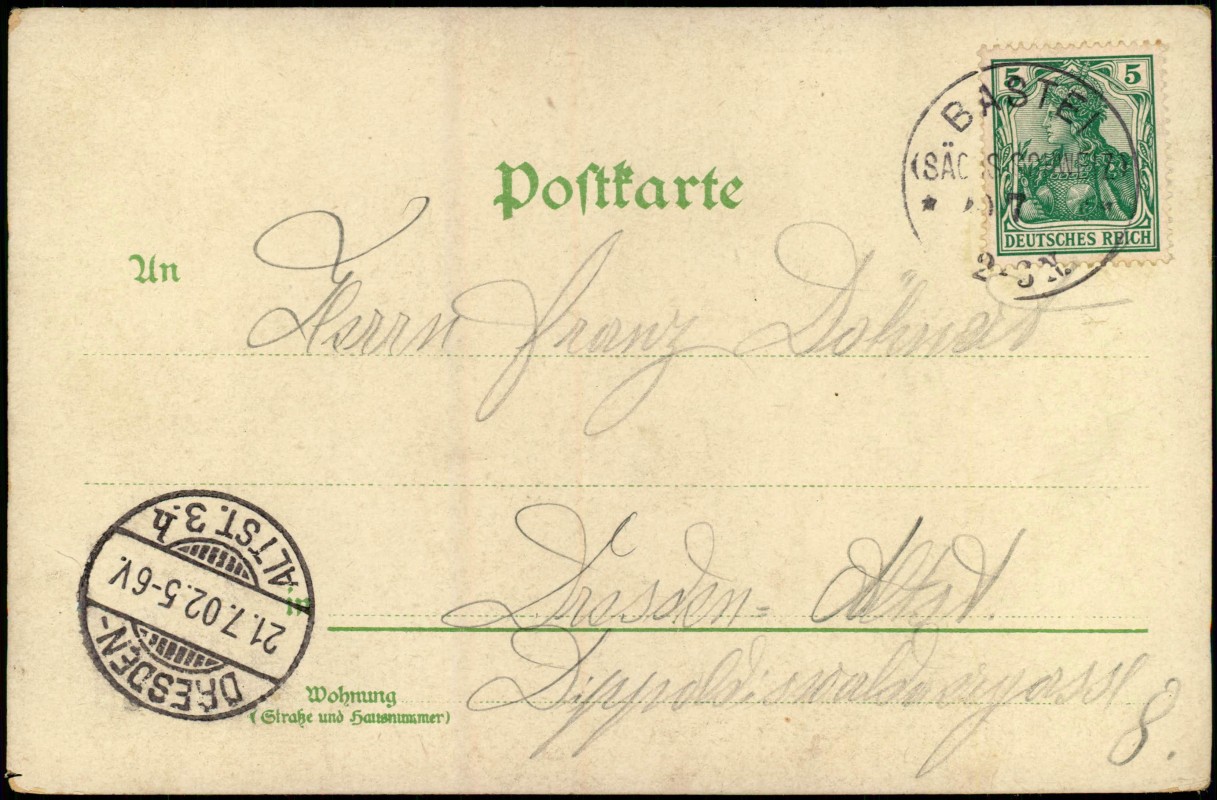 5 5
DEUTSCHES REICH
BASTEI
2-3N.
Postkarte
An
Herrn Franz Döhnert
in Dresden= Altst.
Wohnung
(Straße und Hausnummer)
Dippoldiswaldergasse
8.
DRESDEN-
ALTST. 3.h
21.7.02.5-6V.